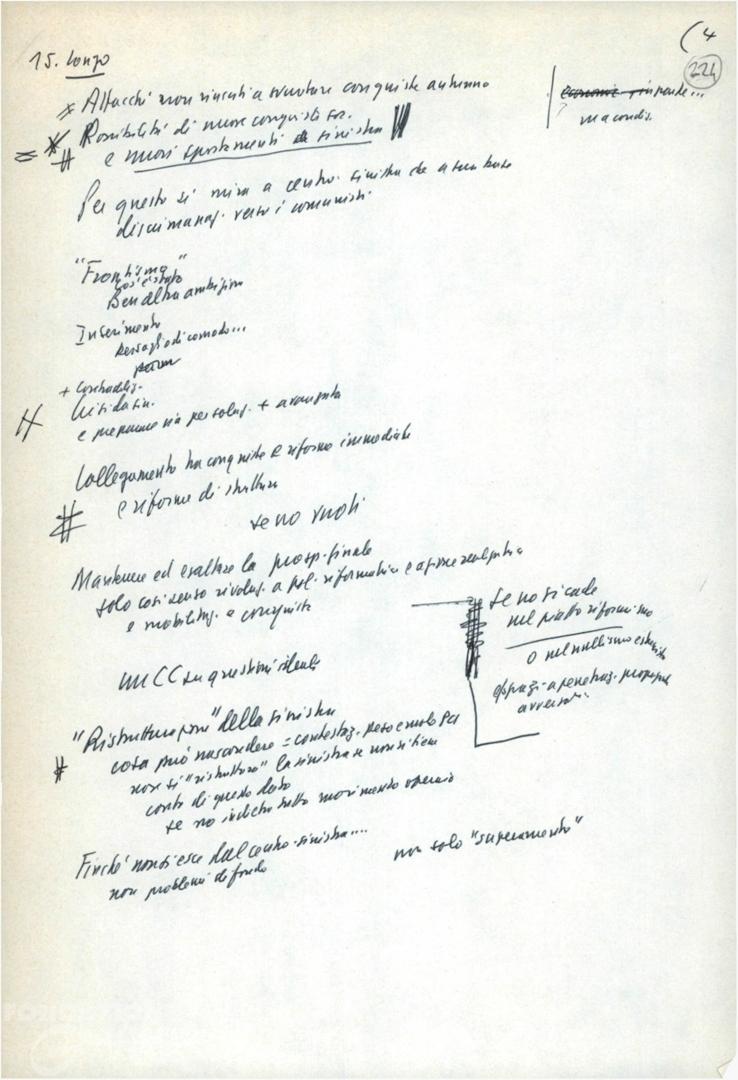 (4
224
15. Longo
Attacchi non riusciti a svuotare conquiste autunno
Possibilità di nuove conquiste soc.
e nuovi spostamenti a sinistra
ma condiz.
Per questo si mira a centro-sinistra che a sua base
discriminaz. verso i comunisti
"Frontismo"
cos'è stato
Ben altra ambizione
Inserimento
Bersaglio di comodo...
+ contraddiz.
e premono via per soluz. + avanzata
Collegamento tra conquiste e riforme immediate
e riforme di struttura
se no vuoti
Mantenere ed esaltare la prosp. finale
solo così senso rivoluz. a pol. riformatrice e azione realpolitica
e mobilitaz. e conquiste
se no si cade
nel piatto riformismo
o nel nullismo estremista
spazi a penetraz. propagande
avversarie
un CC su questioni ideali
"Ristrutturazione" della sinistra
cosa può nascondere = contestaz. peso e ruolo PCI
non si "ristruttura" la sinistra se non si tiene
conto di questo dato
se no indietro tutto movimento operaio
Finché non si esce dal centro-sinistra....
non problemi di fondo
non solo "superamento"